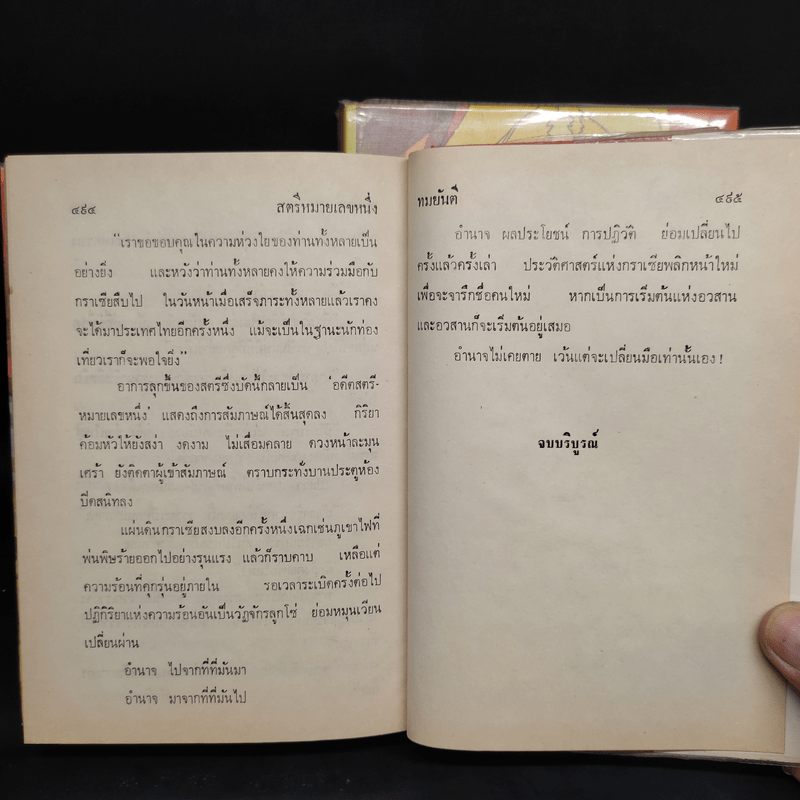 ๔๙๔ สตรีหมายเลขหนึ่ง
“เราขอขอบคุณในความห่วงใยของท่านทั้งหลายเป็น
อย่างยิ่ง และหวังว่าท่านทั้งหลายคงให้ความร่วมมือกับ
กราเซียสืบไป ในวันหน้าเมื่อเสร็จภาระทั้งหลายแล้วเราคง
จะได้มาประเทศไทยอีกครั้งหนึ่ง แม้จะเป็นในฐานะนักท่อง
เที่ยวเราก็จะพอใจยิ่ง”
อาการลุกขึ้นของสตรีซึ่งบัดนี้กลายเป็น ‘อดีตสตรี-
หมายเลขหนึ่ง’ แสดงถึงการสัมภาษณ์ได้สิ้นสุดลง กิริยา
ค้อมหัวให้ยังสง่า งดงาม ไม่เสื่อมคลาย ดวงหน้าละมุน
เศร้า ยังติดตาผู้เข้าสัมภาษณ์ ตราบกระทั่งบานประตูห้อง
ปิดสนิทลง
แผ่นดินกราเซียสงบลงอีกครั้งหนึ่งเฉกเช่นภูเขาไฟที่
พ่นพิษร้ายออกไปอย่างรุนแรง แล้วก็ราบคาบ เหลือแต่
ความร้อนที่คุกรุ่นอยู่ภายใน รอเวลาระเบิดครั้งต่อไป
ปฏิกิริยาแห่งความร้อนอันเป็นวัฏจักรลูกโซ่ ย่อมหมุนเวียน
เปลี่ยนผ่าน
อำนาจ ไปจากที่ที่มันมา
อำนาจ มาจากที่ที่มันไป
ทมยันตี ๔๙๕
อำนาจ ผลประโยชน์ การปฏิวัติ ย่อมเปลี่ยนไป
ครั้งแล้วครั้งเล่า ประวัติศาสตร์แห่งกราเซียพลิกหน้าใหม่
เพื่อจะจารึกชื่อคนใหม่ หากเป็นการเริ่มต้นแห่งอวสาน
และอวสานก็จะเริ่มต้นอยู่เสมอ
อำนาจไม่เคยตาย เว้นแต่จะเปลี่ยนมือเท่านั้นเอง!
จบบริบูรณ์